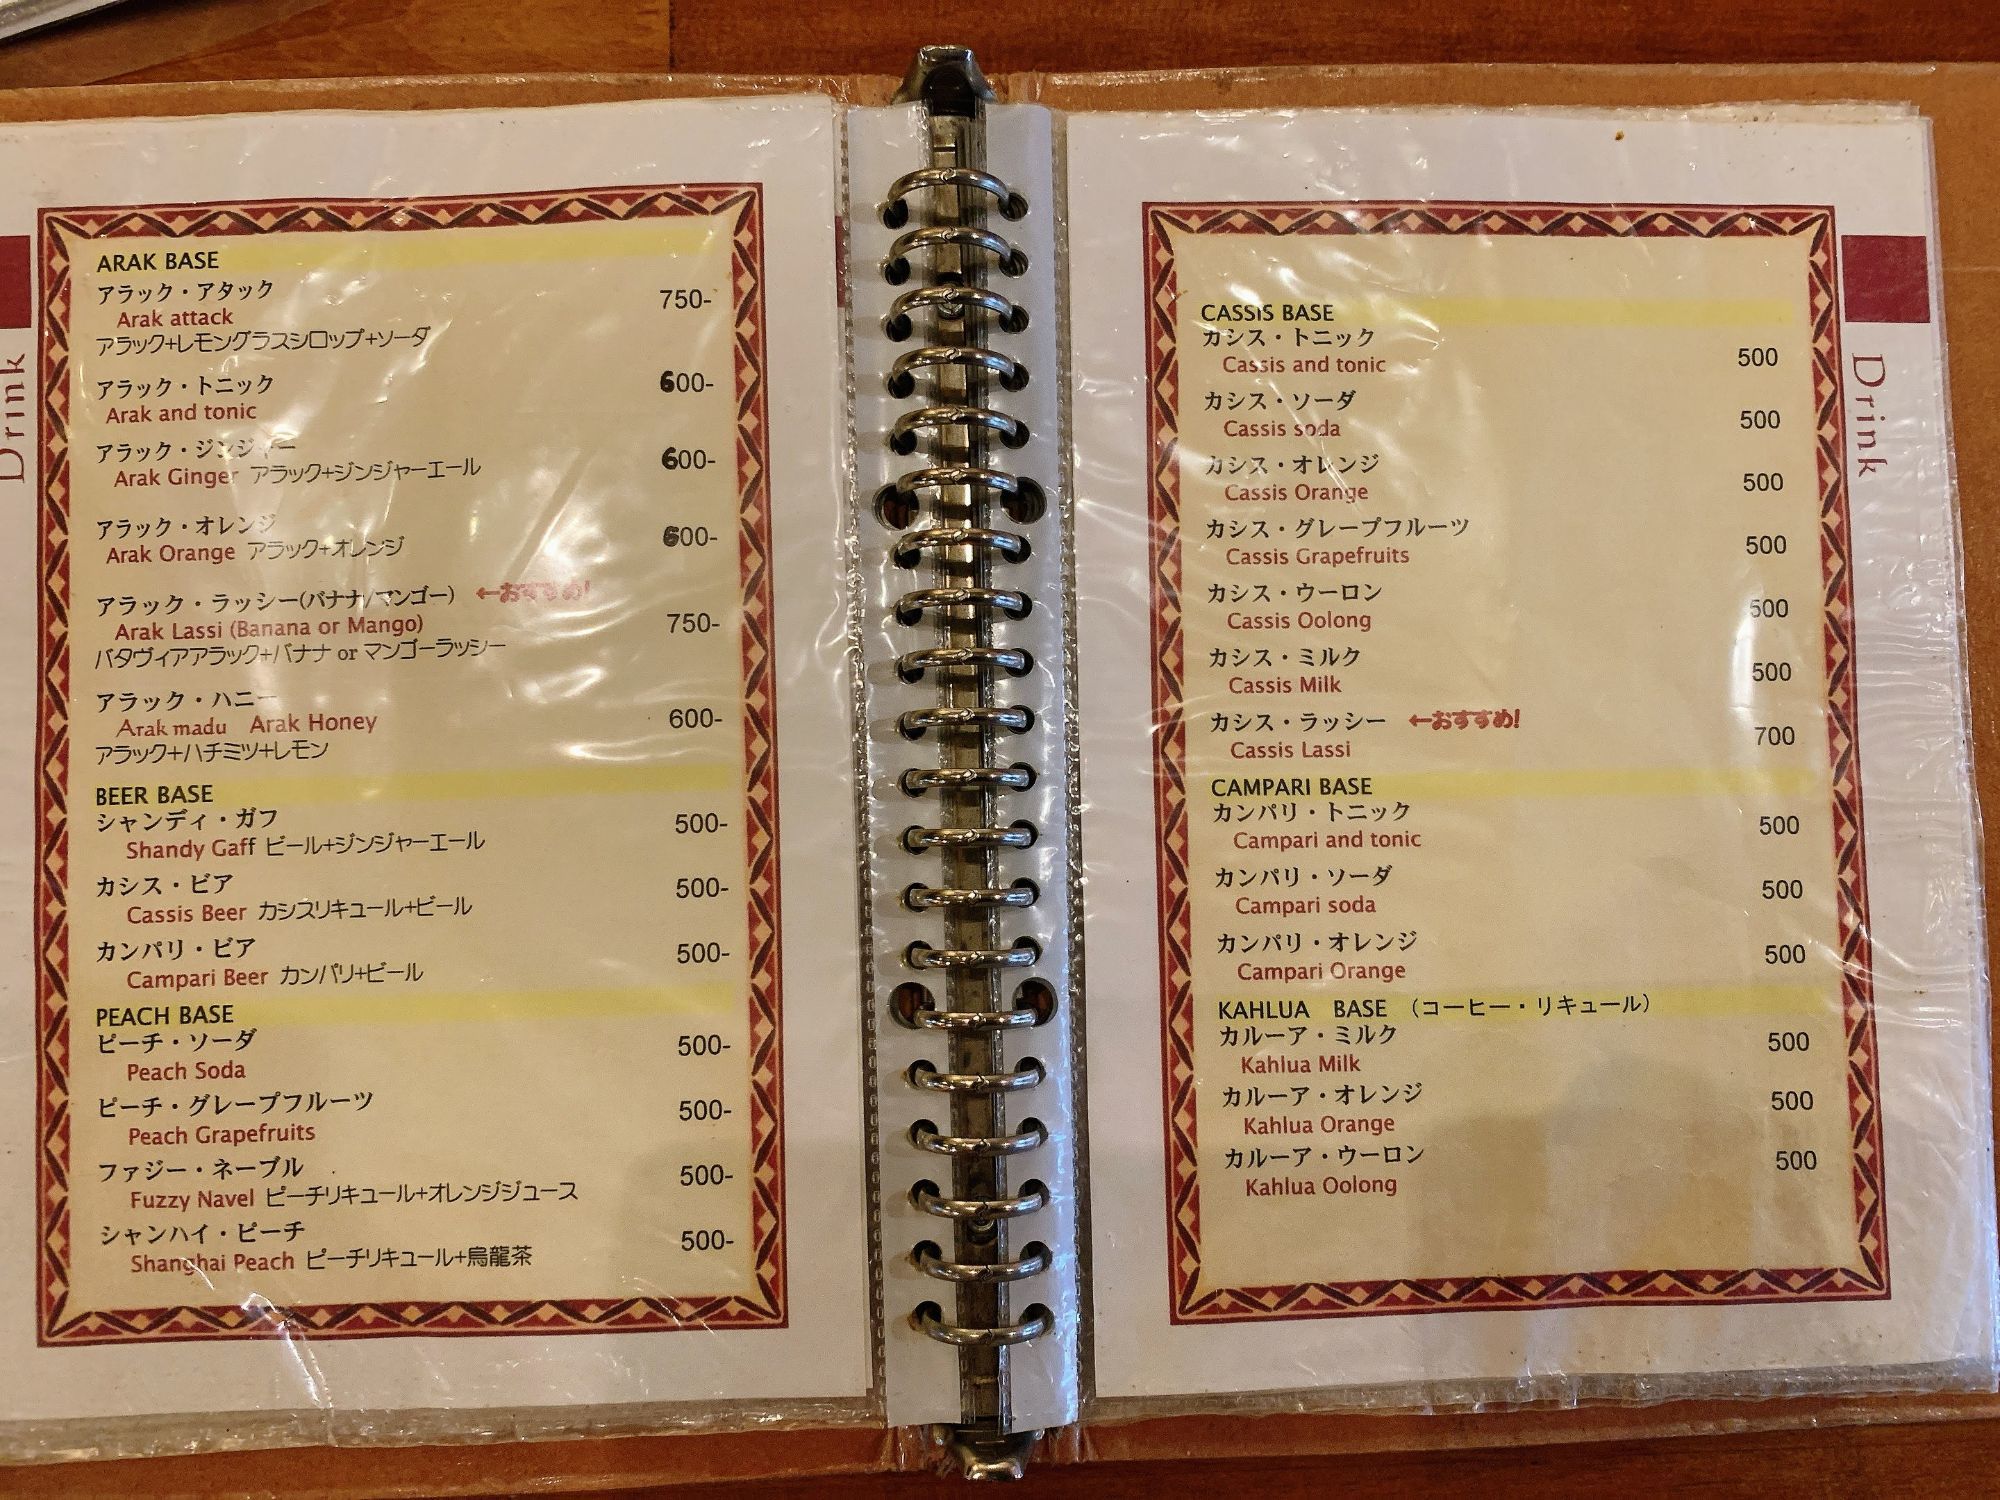 Drink
ARAK BASE
アラック・アタック 750-
Arak attack
アラック+レモングラスシロップ+ソーダ
アラック・トニック 600-
Arak and tonic
アラック・ジンジャー 600-
Arak Ginger アラック+ジンジャーエール
アラック・オレンジ 600-
Arak Orange アラック+オレンジ
アラック・ラッシー(バナナ/マンゴー) ←おすすめ!
Arak Lassi (Banana or Mango) 750-
バタヴィアアラック+バナナ or マンゴーラッシー
アラック・ハニー 600-
Arak madu Arak Honey
アラック+ハチミツ+レモン
BEER BASE
シャンディ・ガフ 500-
Shandy Gaff ビール+ジンジャーエール
カシス・ビア 500-
Cassis Beer カシスリキュール+ビール
カンパリ・ビア 500-
Campari Beer カンパリ+ビール
PEACH BASE
ピーチ・ソーダ 500-
Peach Soda
ピーチ・グレープフルーツ 500-
Peach Grapefruits
ファジー・ネーブル 500-
Fuzzy Navel ピーチリキュール+オレンジジュース
シャンハイ・ピーチ 500-
Shanghai Peach ピーチリキュール+烏龍茶
CASSIS BASE
カシス・トニック 500
Cassis and tonic
カシス・ソーダ 500
Cassis soda
カシス・オレンジ 500
Cassis Orange
カシス・グレープフルーツ 500
Cassis Grapefruits
カシス・ウーロン 500
Cassis Oolong
カシス・ミルク 500
Cassis Milk
カシス・ラッシー ←おすすめ! 700
Cassis Lassi
CAMPARI BASE
カンパリ・トニック 500
Campari and tonic
カンパリ・ソーダ 500
Campari soda
カンパリ・オレンジ 500
Campari Orange
KAHLUA BASE (コーヒー・リキュール)
カルーア・ミルク 500
Kahlua Milk
カルーア・オレンジ 500
Kahlua Orange
カルーア・ウーロン 500
Kahlua Oolong
Drink